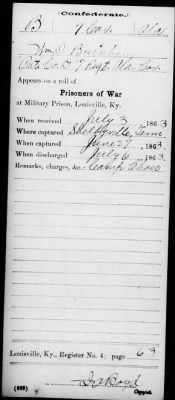 Confederate.
B 7 Cav. Ala.
Wm D
Pvt Co. D 7 Regt. Ala Cav.
Appears on a roll of
Prisoners of War
at Military Prison, Louisville, Ky.
When received July 3, 1863
Where captured Shelbyville, Tenn
When captured June 27, 1863.
When discharged July 6, 1863.
Remarks, charges, &c. Camp Chase
Louisville, Ky., Register No. 4; page 63
(639) Boyd
Copyist.